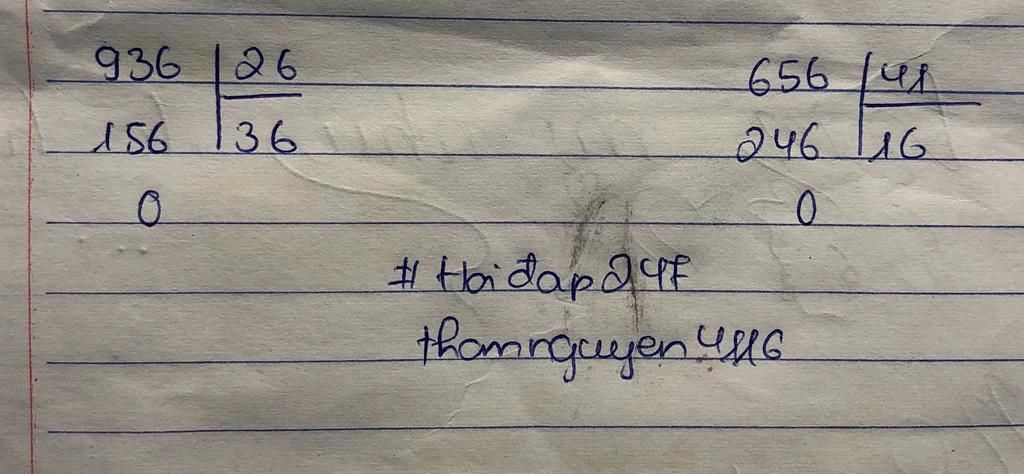 936 26
156 36
0
656 41
246 16
0
# Hỏi đap 247
thomnguyen4116